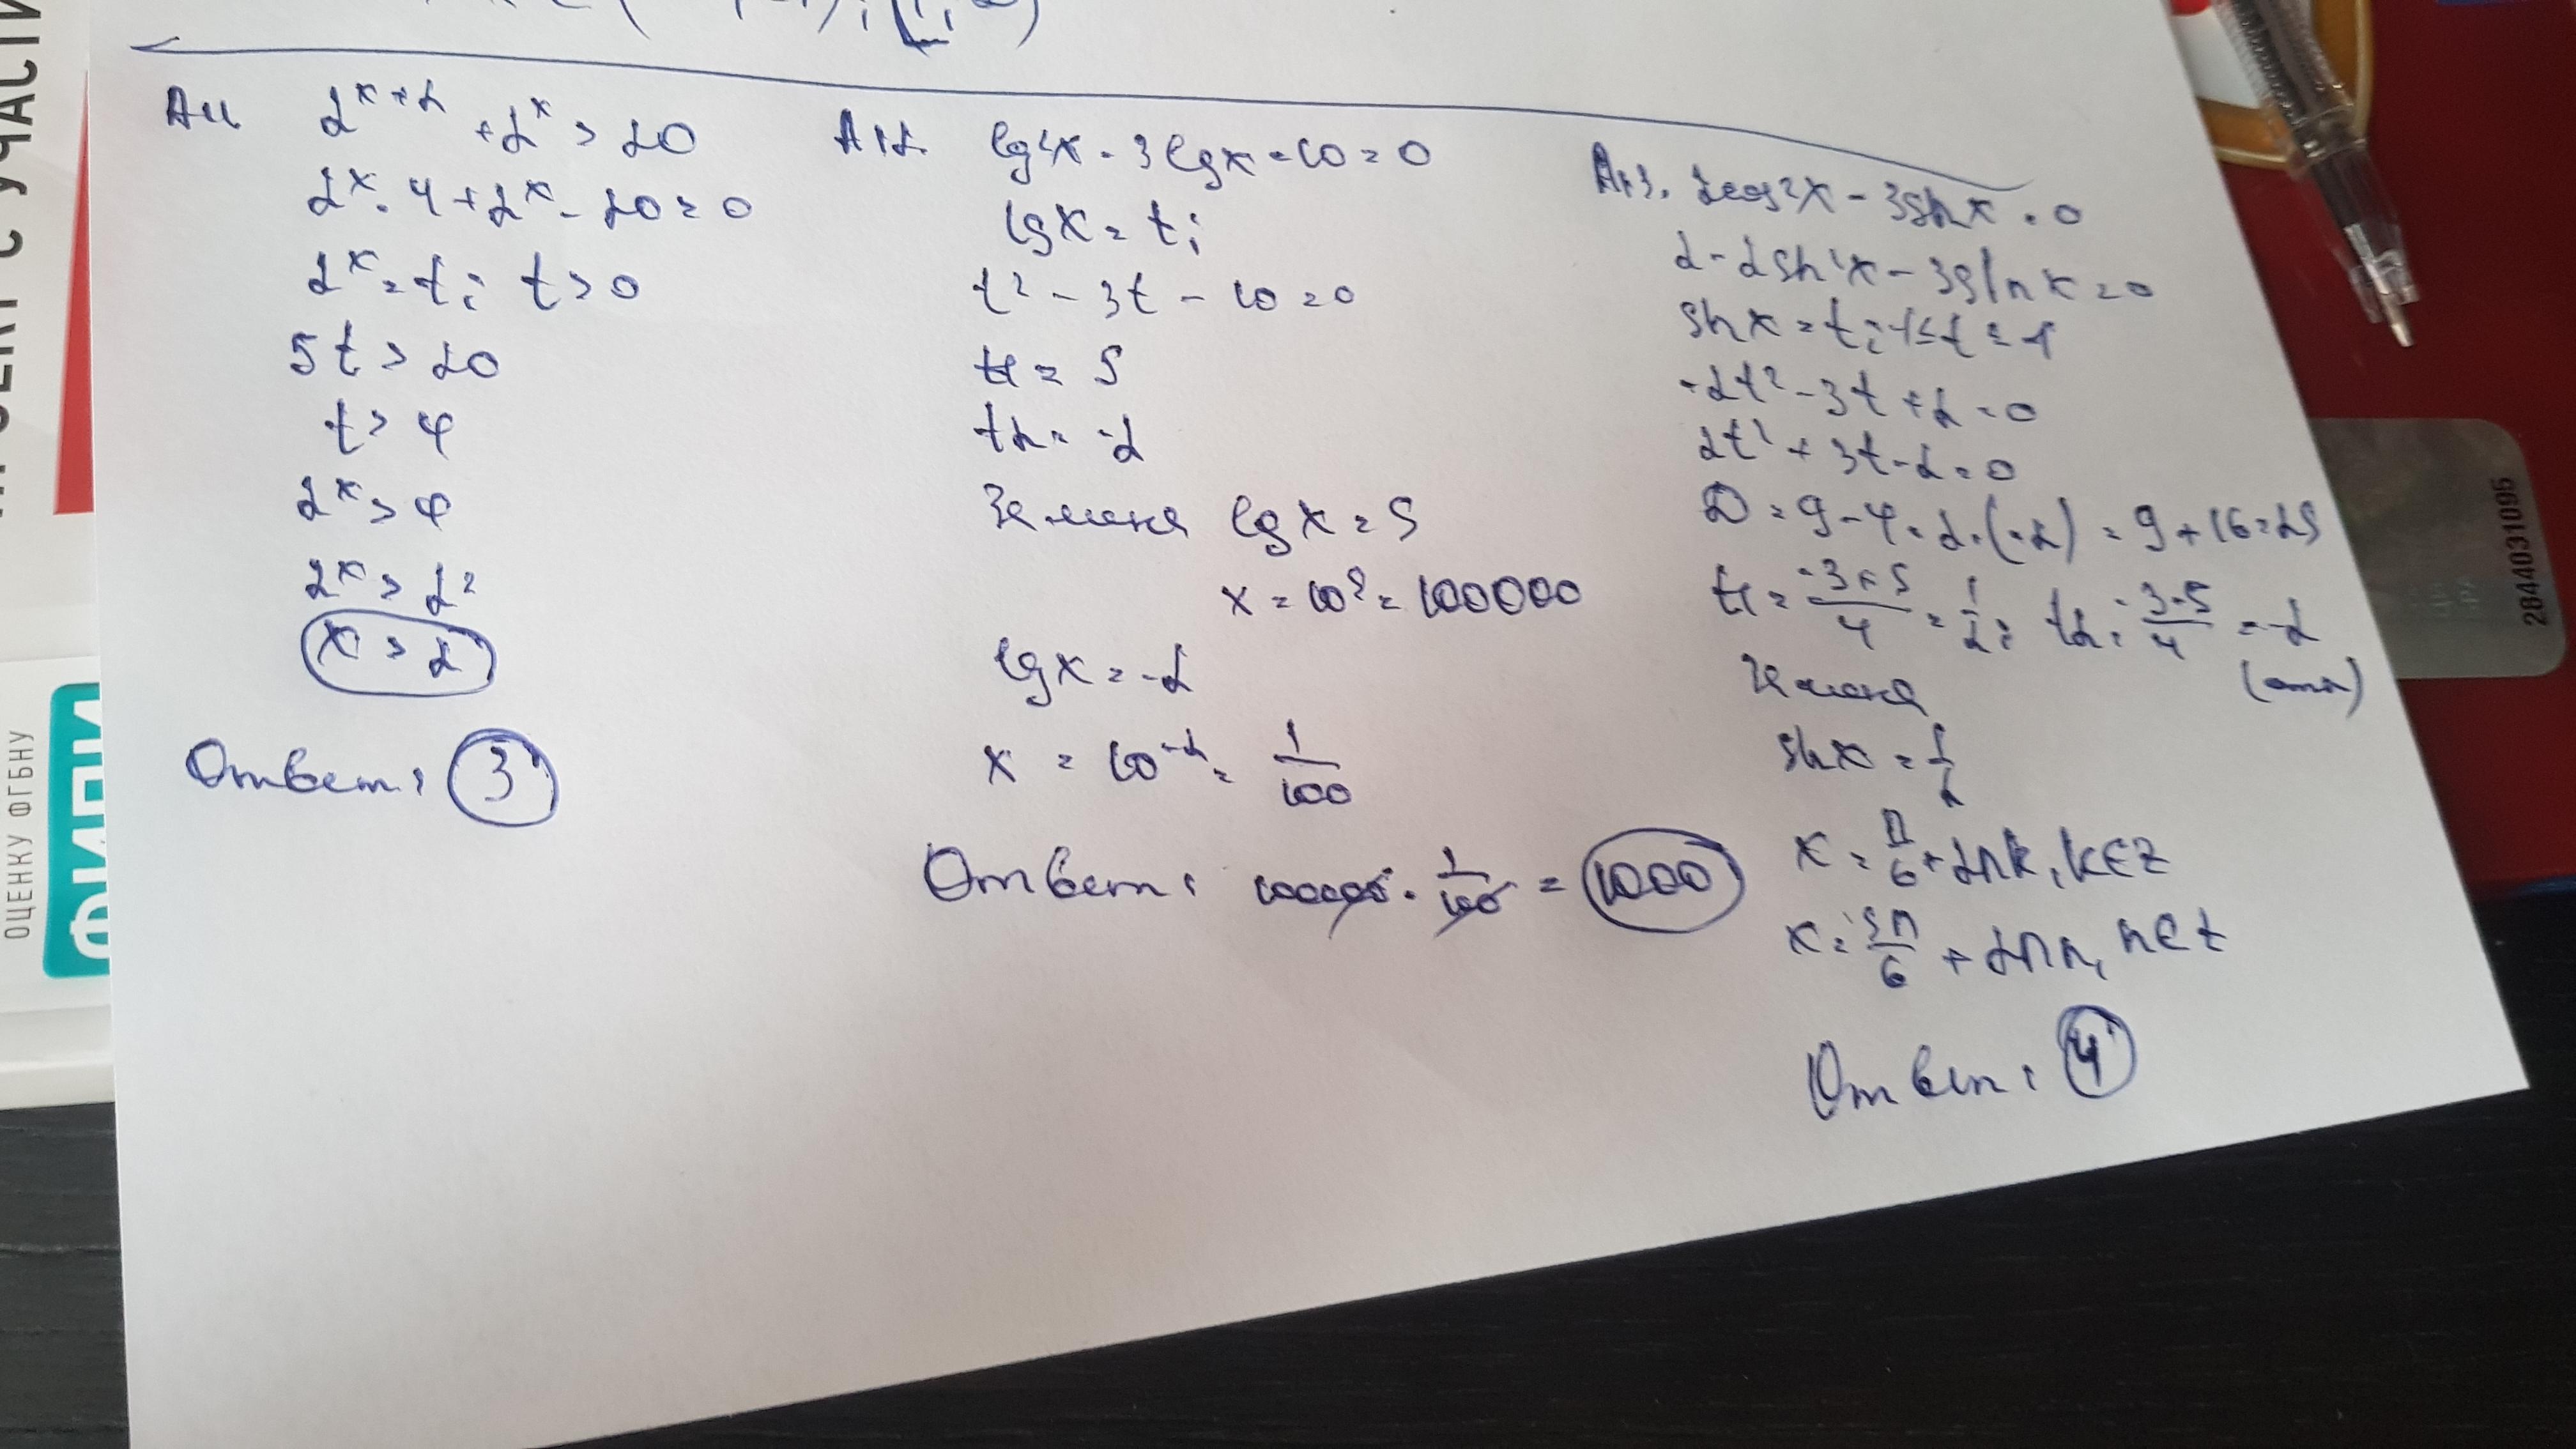 A11
2^x+2 + 2^x > 20
2^x · 4 + 2^x - 20 = 0
2^x = t; t > 0
5t > 20
t > 4
2^x > 4
2^x > 2²
x > 2
Ответ: 3
A12.
lg²x - 3lgx - 10 = 0
lgx = t;
t² - 3t - 10 = 0
t1 = 5
t2 = -2
Замена lgx = 5
x = 10⁵ = 100000
lgx = -2
x = 10⁻² = 1/100
Ответ: 100000 · 1/100 = 1000
A13. 2cos²x - 3sinx = 0
2 - 2sin²x - 3sinx = 0
sinx = t; -1 ≤ t ≤ 1
-2t² - 3t + 2 = 0
2t² + 3t - 2 = 0
D = 9 - 4 · 2 · (-2) = 9 + 16 = 25
t1 = -3+5/4 = 1/2; t2 = -3-5/4 = -2
Замена
sinx = 1/2
x = π/6 + 2πk, k∈Z
x = 5π/6 + 2πn, n∈Z
Ответ: 4
ОЦЕНКУ ФГБНУ
ФИПИ
С УЧАСТИ
2844031095